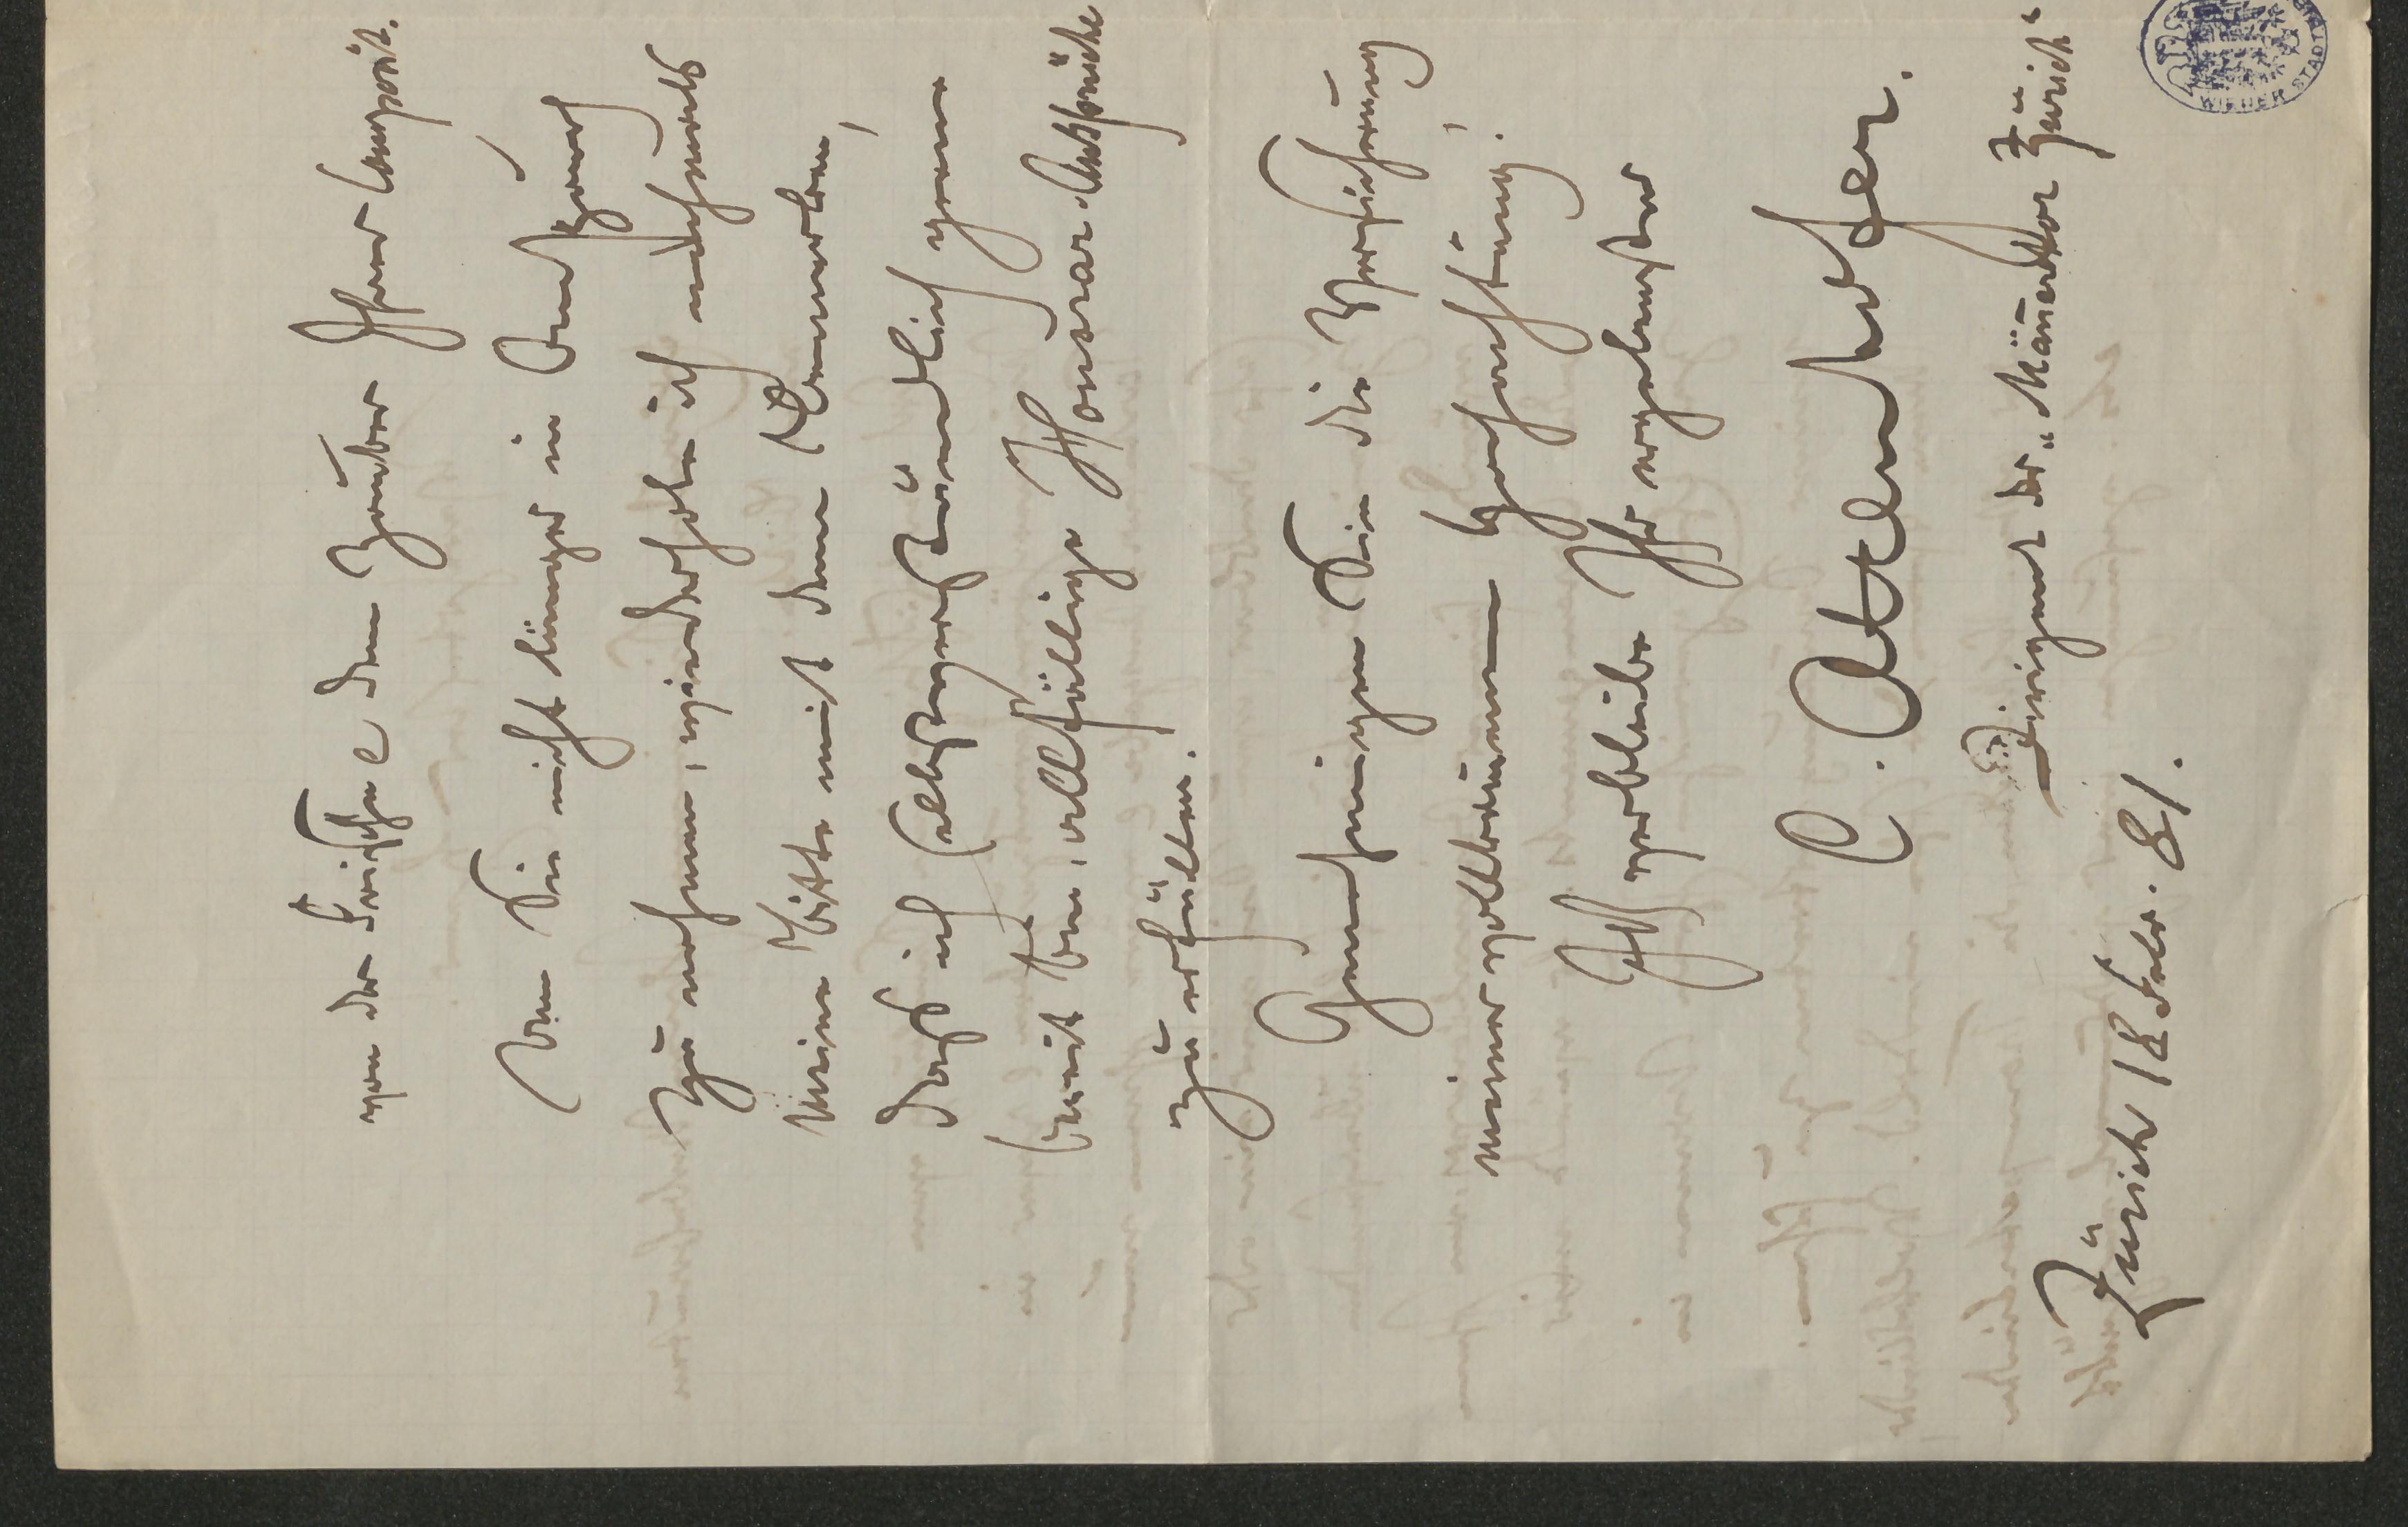 von der Frische & dem Zauber Ihrer Composit.
Um Sie nicht länger in Anspruch
zu nehmen, wiederhole ich nochmals
meine Bitte mit dem Bemerken,
daß ich selbstverständlich gerne
bereit bin, allfällige Honorar-Ansprüche
zu erfüllen.
Genehmigen Sie die Versicherung
meiner vollkommenen Hochachtung!
Ich verbleibe Ihr ergebenster
C. Attenhofer.
Dirigent des „Männerchor Zürich“
Zürich 18 Febr. 81.